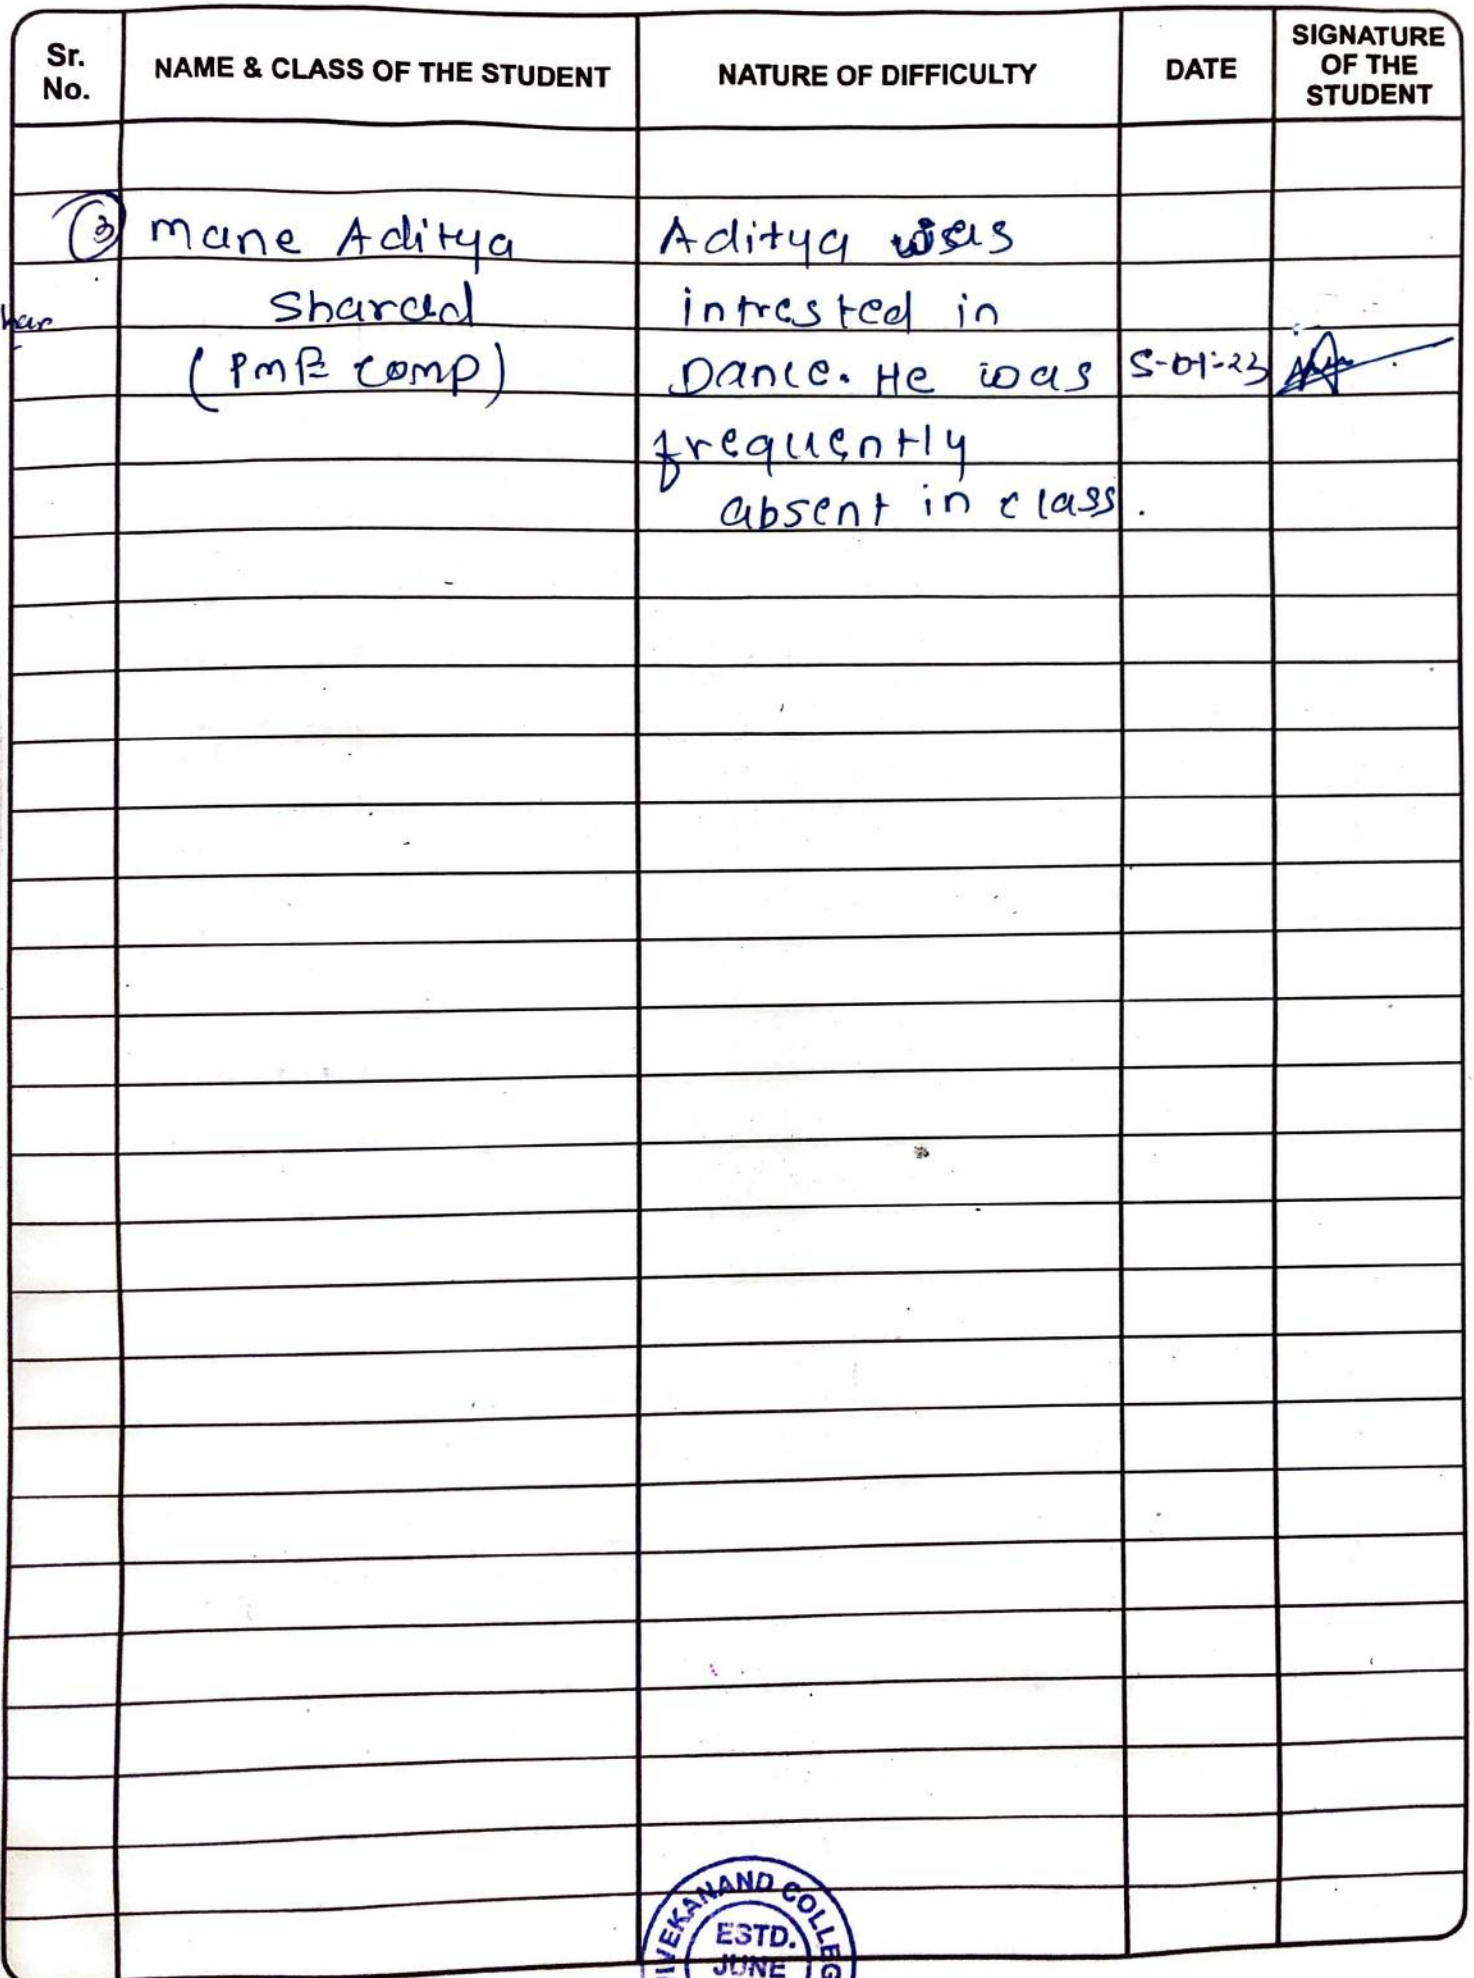 Sr. No.
NAME & CLASS OF THE STUDENT
NATURE OF DIFFICULTY
DATE
SIGNATURE OF THE STUDENT
③ Mane Aditya Aditya was
Sharad intrested in
(PME comp) Dance. He was 5-01-23
frequently
absent in class.
VIVEKANAND COLLEG
ESTD.
JUNE